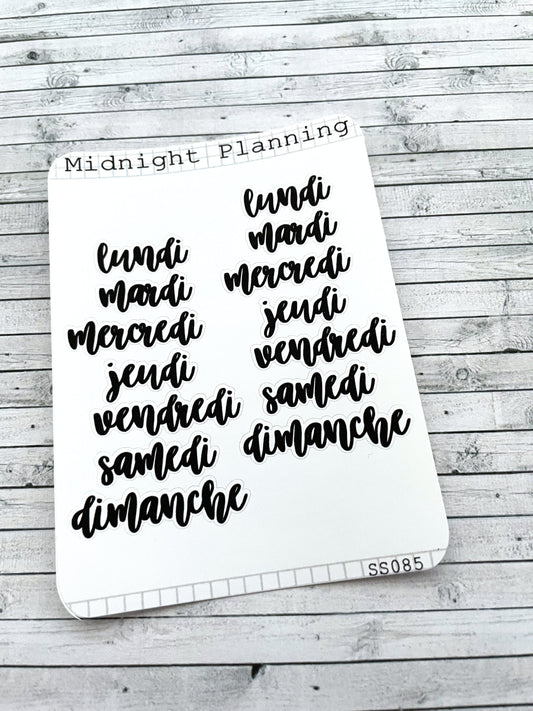 Midnight Planning
lundi
mardi
mercredi
jeudi
vendredi
samedi
dimanche
lundi
mardi
mercredi
jeudi
vendredi
samedi
dimanche
SS085